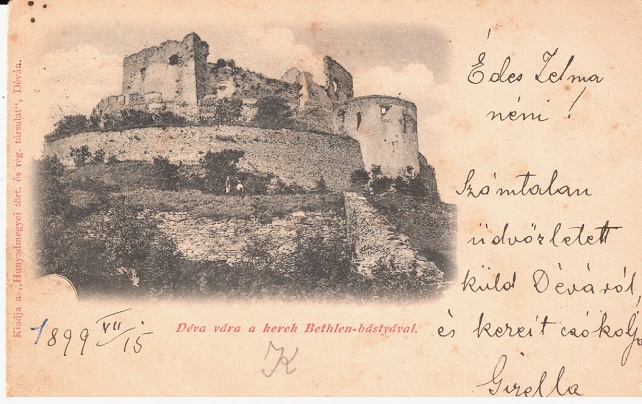 Kiadja a „Hunyadmegyei tört. és rég. társulat", Déván.
Édes Zelma
néni!
Számtalan
üdvözletett
küld Déváról,
és kezeit csókolja
Gizella
Déva vára a kerek Bethlen-bástyával.
1899 VII/15
K